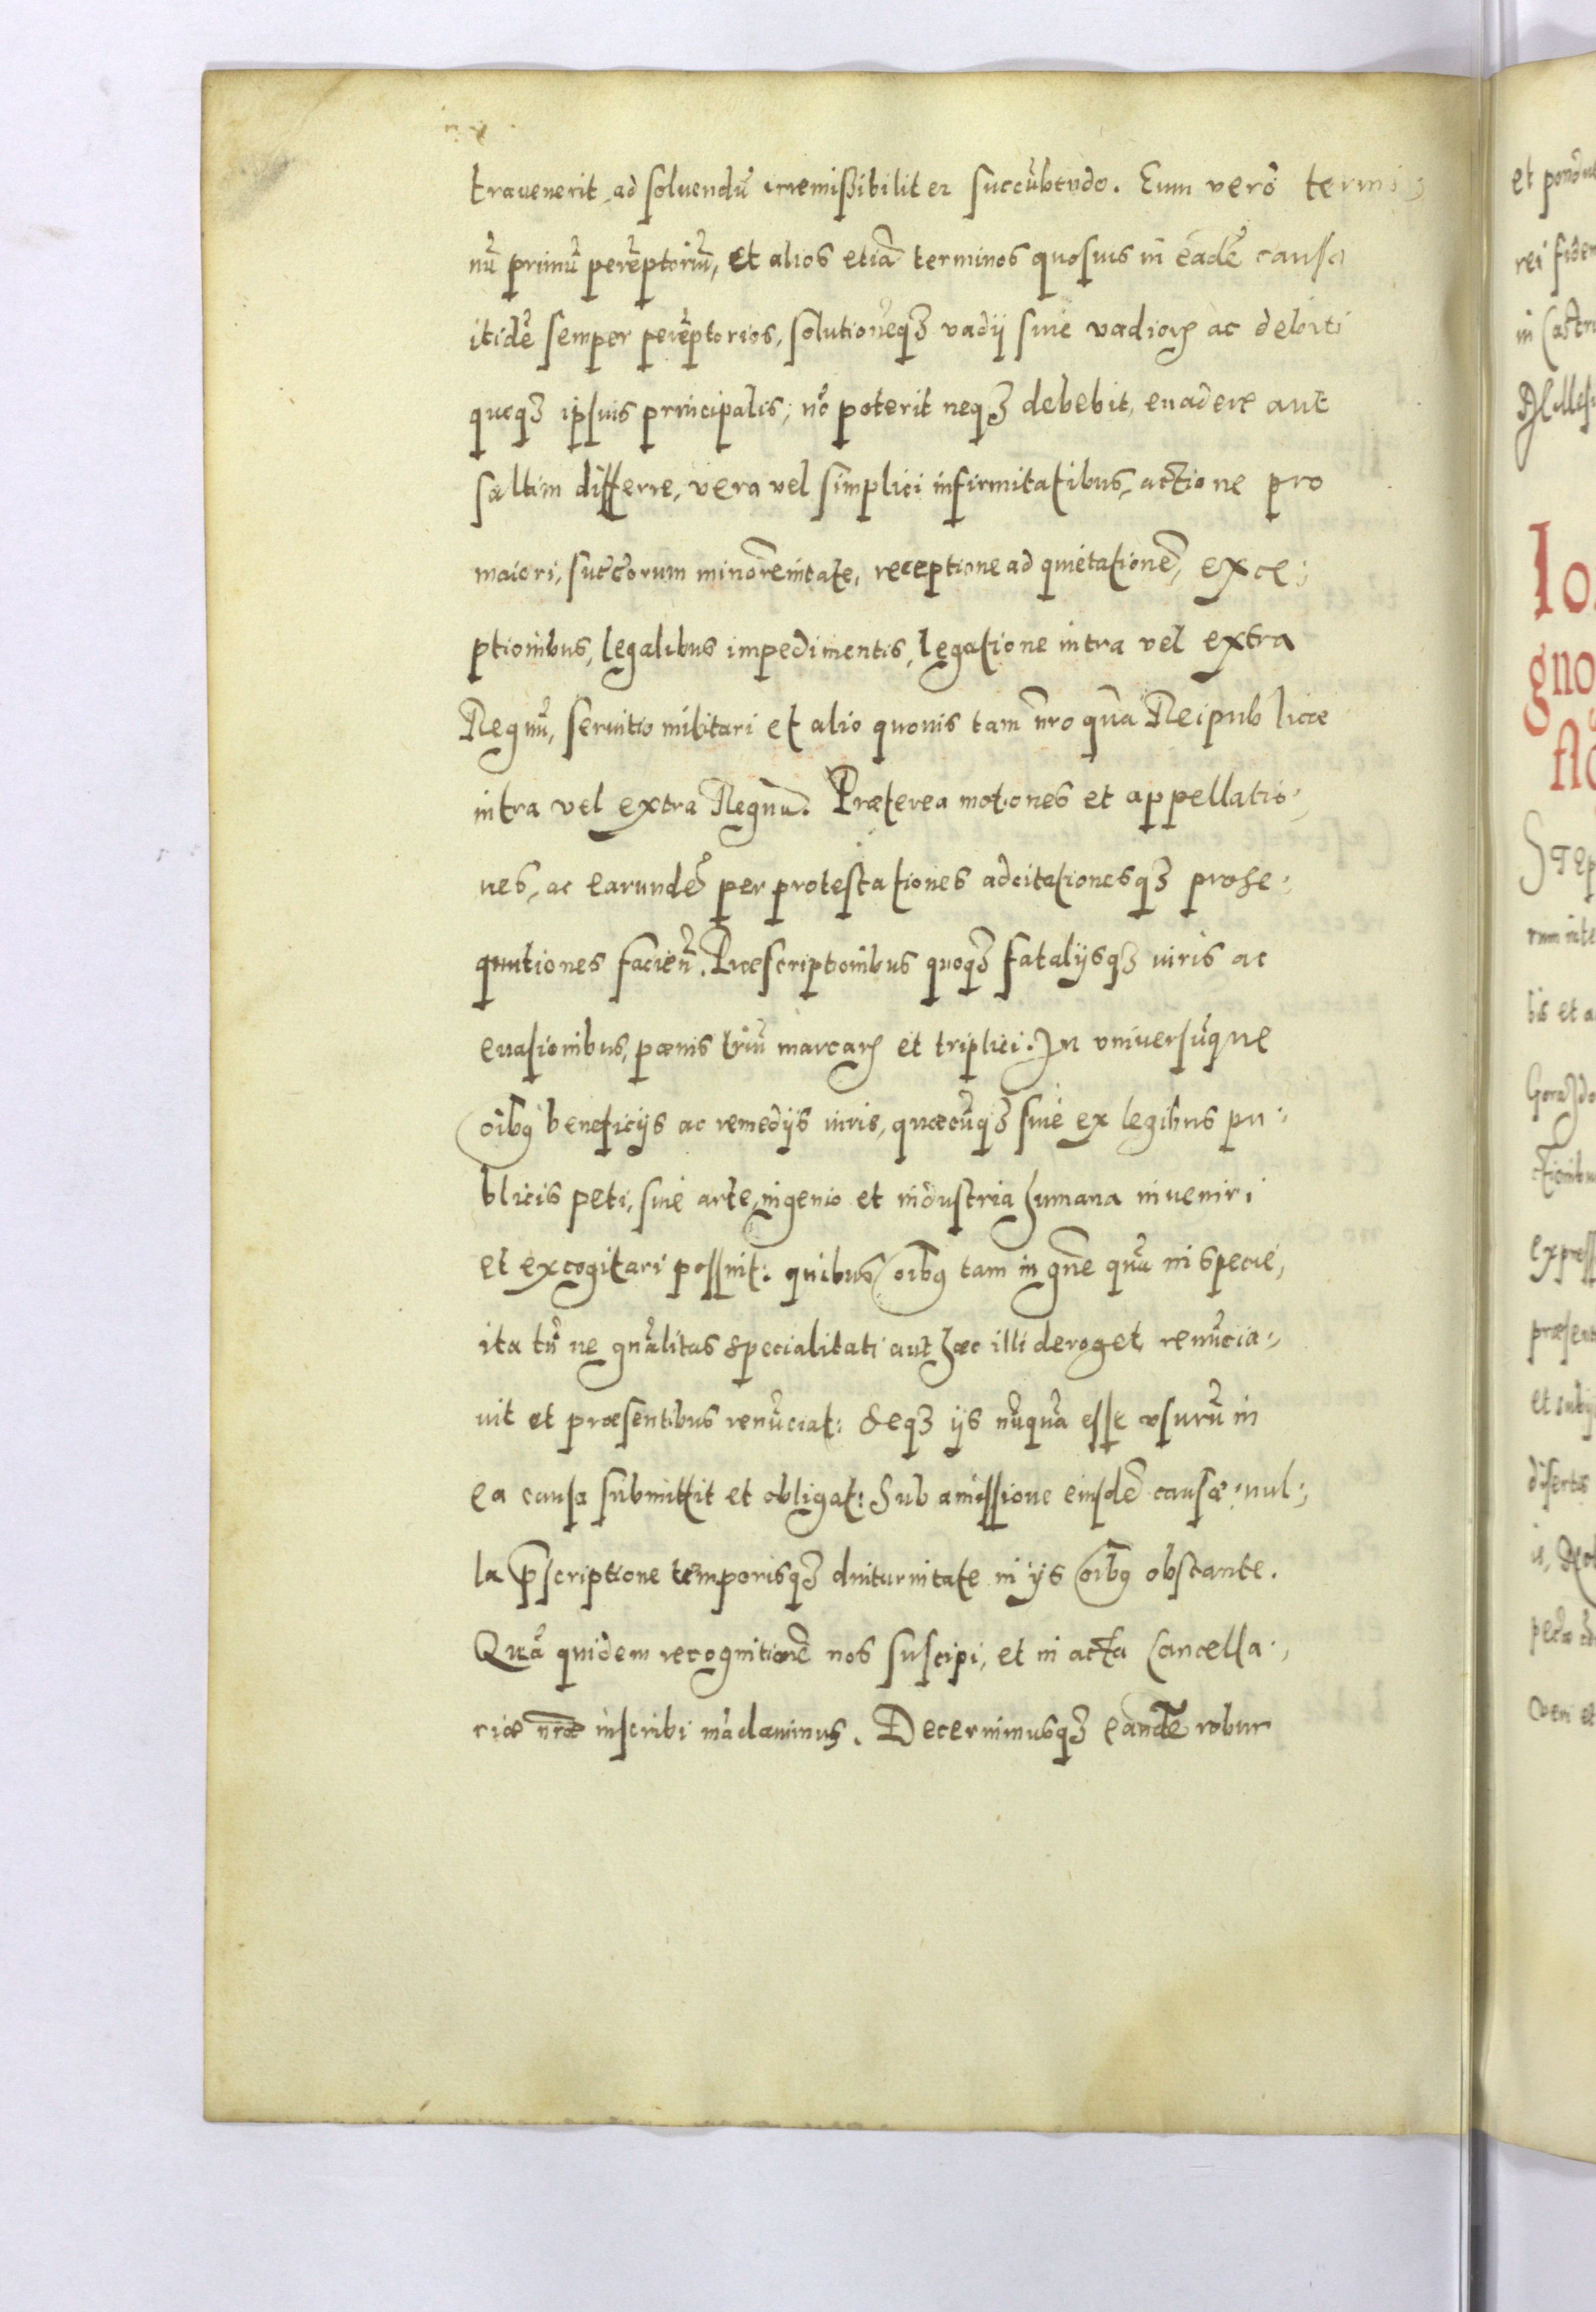 trauenerit, ad soluendũ irremißibiliter succũbendo. Eum verò termi:
nũ primũ perẽptoriũ, et alios etiã terminos quosuis in eadẽ causa
itidẽ semper perẽptorios, solutionẽq3 vadij siue vadioꝝ ac debiti
quoq3 ipsuis principalis; nõ poterit neq3 debebit, euadere aut
saltim differre, vera vel simplici infirmitatibus, actione pro
maiori, succorum minorẽnitate, receptione ad quietationẽ, exce:
ptionibus, legalibus impedimentis, legatione intra vel extra
Regnũ, seruitio militari et alio quouis tam nr̃o quã Reipublicæ
intra vel extra Regnũ. Præterea motiones et appellatio:
nes, ac earundẽ per protestationes adcitationesq3 prose:
quutiones facieñ. Præscriptionibus quoq3 fatalijsq3 iuris ac
euasionibus, pœnis triũ marcaꝝ et triplici. In vniuersũque
oĩbꝯ beneficijs ac remedijs iuris, quæcũq3 siue ex legibus pu:
blicis peti, siue arte, ingenio et industria humana inueniri
et excogitari possint: quibus oĩbꝯ tam in gñe quã in specie,
ita tñ ne gnãlitas specialitati aut hæc illi deroget, renũcia:
uit et præsentibus renũciat: Seq3 ijs nũquã esse vsurũ in
ea causa submittit et obligat: Sub amissione eiusdẽ causæ: nul:
la p̃scriptione temporisq3 diuturnitate in ijs oĩbꝯ obstante.
Quã quidem recognitionẽ nos suscipi, et in acta Cancella:
riæ nr̃æ inscribi mãdauimus. Decernimusq3 eandẽ robur
et
rei
in
Io
gno
Step
bis et a
no
præsent